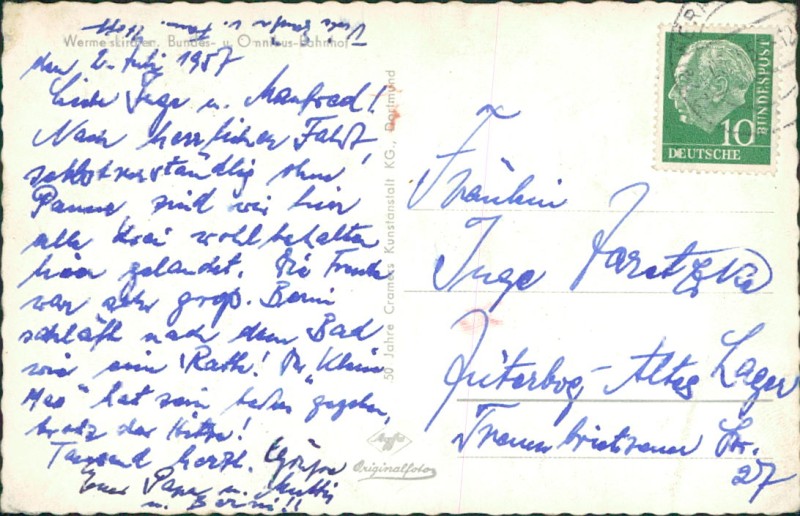 Wermelskirchen. Bundes- u. Omnibus-Bahnhof
den 2. July 1957
Liebe Inge u. Manfred!
Nach herrlicher Fahrt,
selbstverständlig ohne
Panne, sind wir hier
alle drei wohlbehalten
hier gelandet. Die Freude
war sehr groß. Berni
schläft nach dem Bad
wie ein Rath! Der "Klein
hat sein bestes gegeben,
trotz der Hitze!
Tausend herzl. Grüße
Euer Papa u. Mutti
u. Berni!!
50 Jahre Cramers Kunstanstalt KG., Dortmund
Agfa
Originalfoto
10
DEUTSCHE
BUNDESPOST
Fräulein
Inge Jaretzke
Jüterbog- Altes Lager
Treuenbrietzener Str.
27